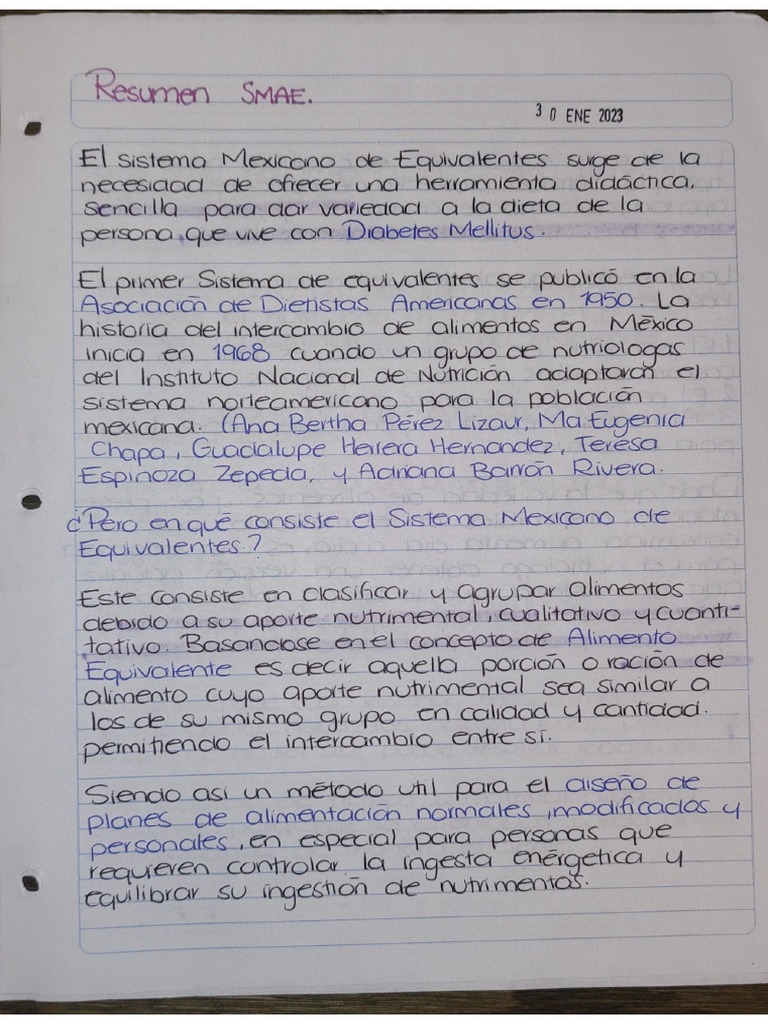 Resumen SMAE.
30 ENE 2023
El sistema Mexicano de Equivalentes surge de la
necesidad de ofrecer una herramienta didáctica,
sencilla para dar variedad a la dieta de la
persona que vive con Diabetes Mellitus.
El primer Sistema de equivalentes se publicó en la
Asociación de Dietistas Americanas en 1950. La
historia del intercambio de alimentos en México
inicia en 1968 cuando un grupo de nutriologas
del Instituto Nacional de Nutrición adaptarón el
sistema norteamericano para la población
mexicana. (Ana Bertha Pérez Lizaur, Ma. Eugenia
Chapa, Guadalupe Herrera Hernandez, Teresa
Espinoza Zepeda, y Adriana Barrón Rivera.
¿Pero en qué consiste el Sistema Mexicano de
Equivalentes?
Este consiste en clasificar y agrupar alimentos
debido a su aporte nutrimental, cualitativo y cuanti-
tativo. Basandose en el concepto de Alimento
Equivalente es decir aquella porción o ración de
alimento cuyo aporte nutrimental sea similar a
los de su mismo grupo en calidad y cantidad.
permitiendo el intercambio entre sí.
Siendo asi un método util para el diseño de
planes de alimentación normales, modificados y
personales, en especial para personas que
requieren controlar la ingesta enérgetica y
equilibrar su ingestión de nutrimentos.